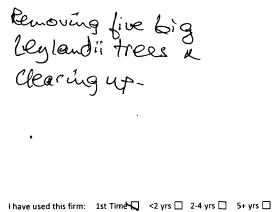 Removing five big
Leylandii trees &
clearing up-
I have used this firm: 1st Time ☒ <2 yrs ☐ 2-4 yrs ☐ 5+ yrs ☐